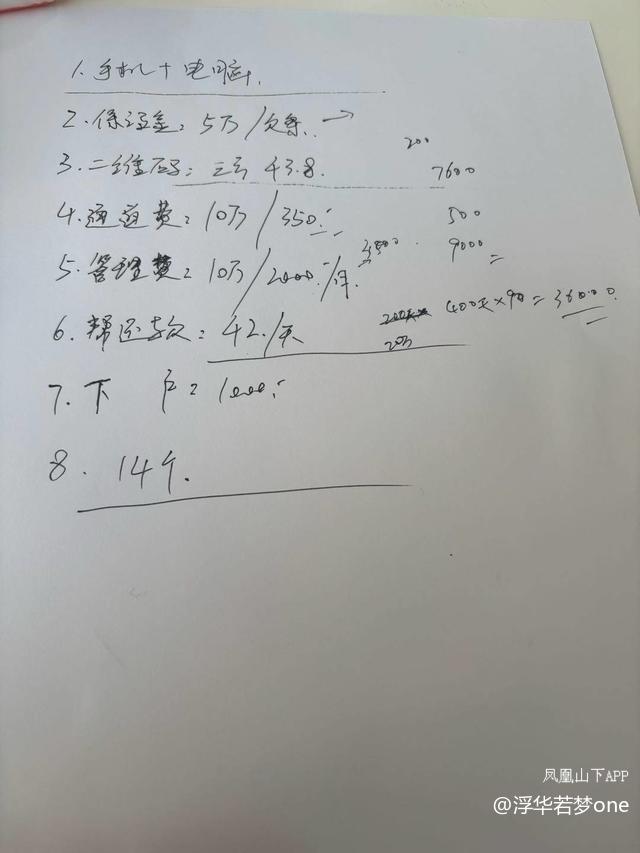 1. 手机+电脑.
2. 保证金: 5万/欠条. →
3. 二维码: 三号 43.8.
200
7600
4. 通道费: 10万/350.
500
5. 管理费: 10万/2000./年.
9000
6. 帮还款: 42./天
400天×90=36000.
7. 下 户: 1000.
8. 14个.
凤凰山下APP
@浮华若梦one